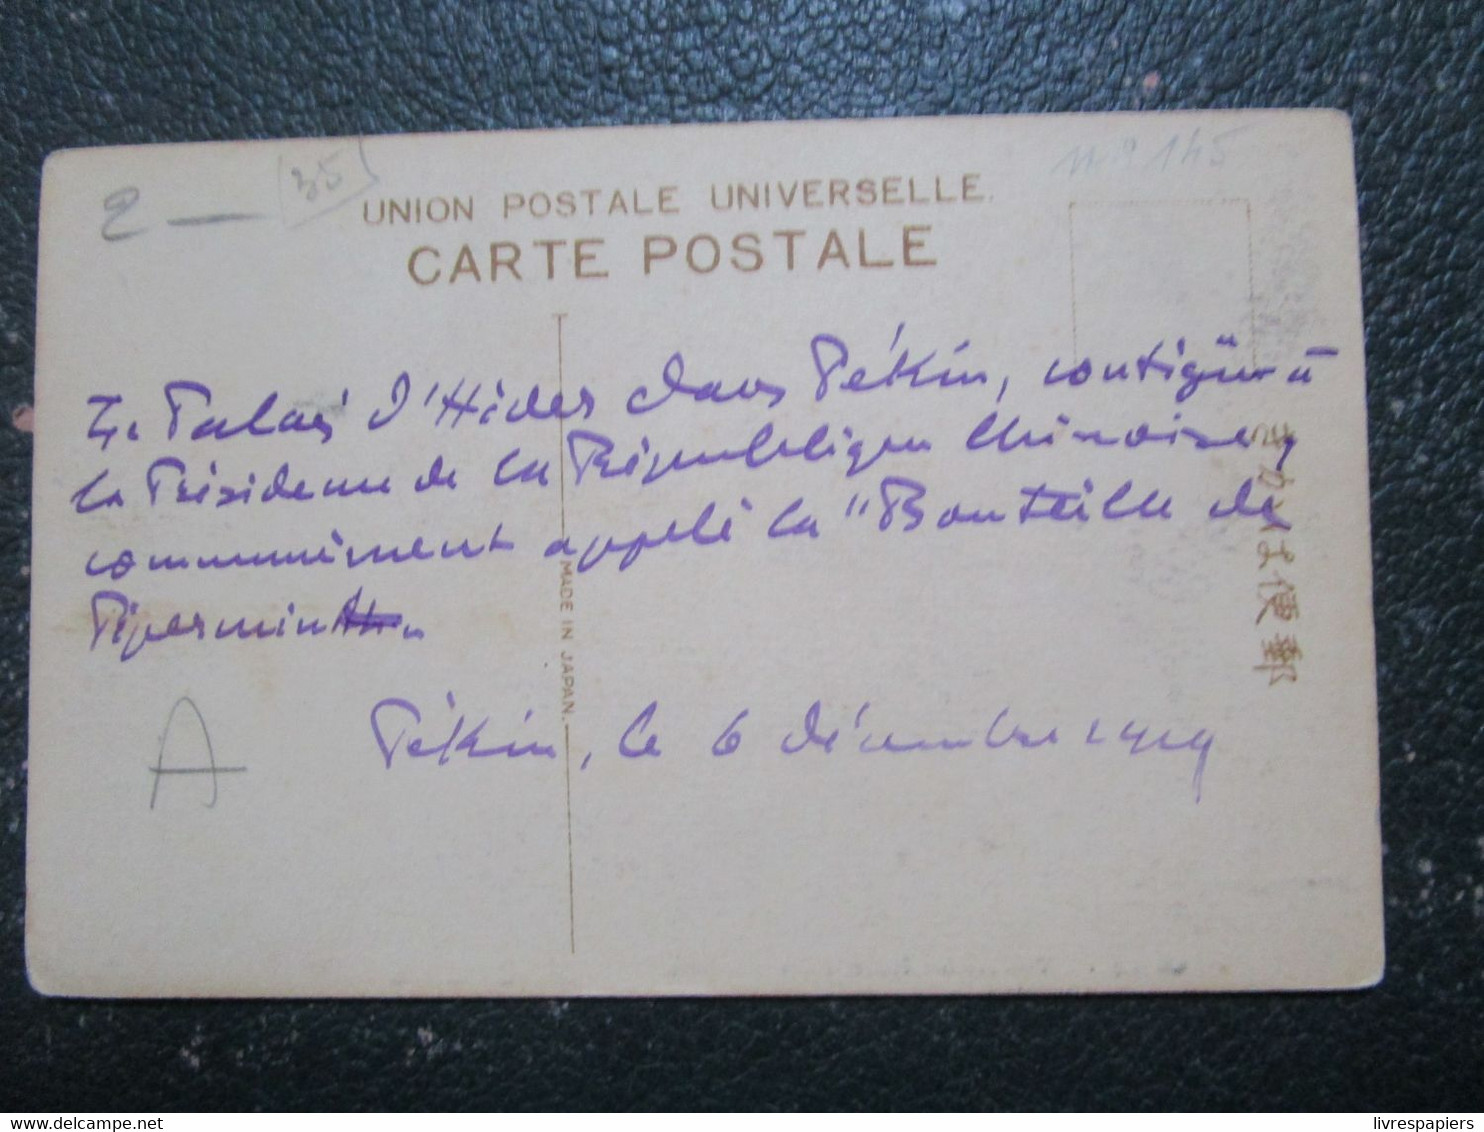 2 —
35
nº 145
UNION POSTALE UNIVERSELLE.
CARTE POSTALE
Le Palais d'Hiver dans Pékin, contigüe à
la Présidence de la République Chinoise,
communément appelé la "Bouteille de
Pipermint".
Pékin, le 6 décembre 1919
A
MADE IN JAPAN.
きかは便郵
livrespapiers
delcampe.net